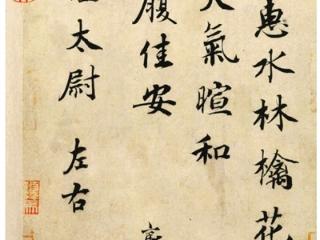 惠水林檎花
天氣暄和
履佳安
太尉 左右